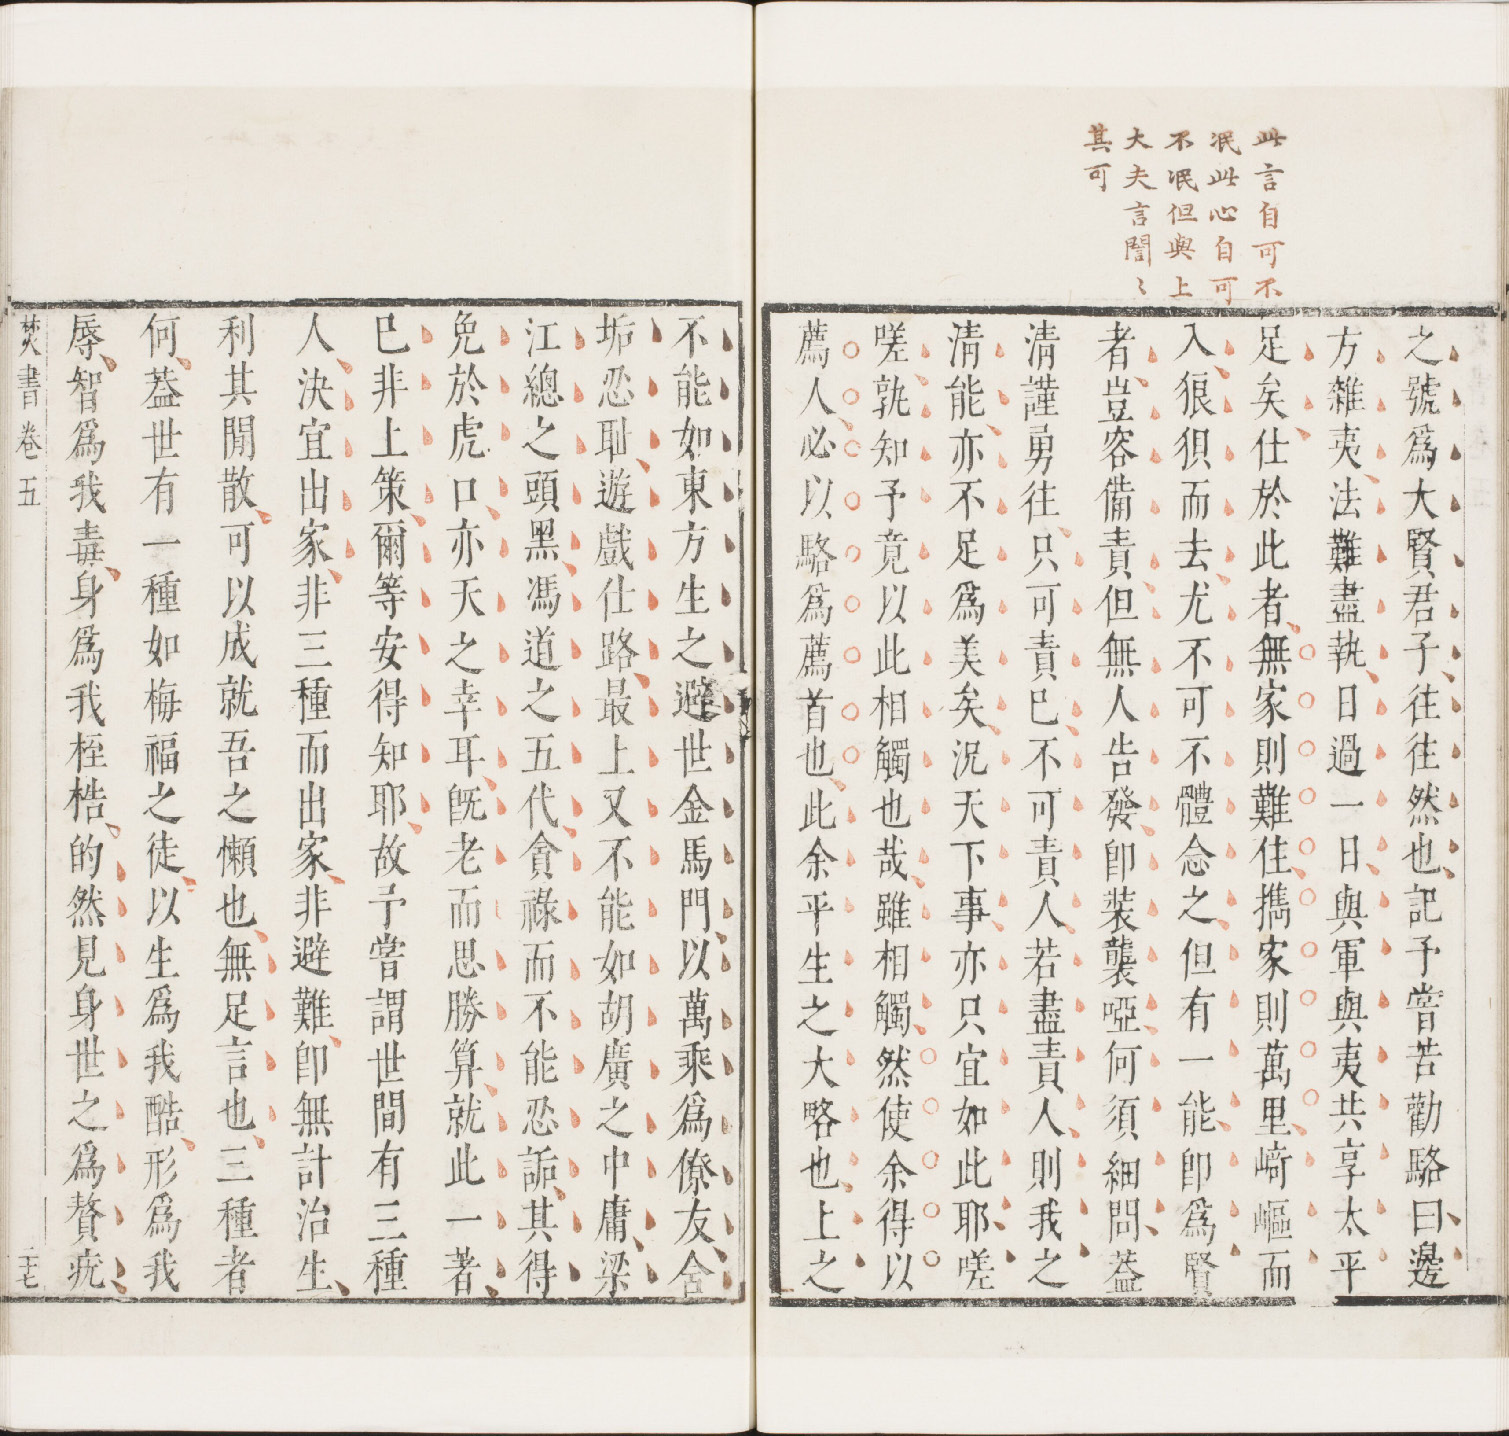 此言自可不
泯此心自可
不泯但與上
大夫言誾〻
其可
之號爲大賢君子往往然也記予嘗苦勸駱曰邊
方雜夷法難盡執日過一日與軍與夷共享太平
足矣仕於此者無家則難住攜家則萬里崎嶇而
入狼狽而去尤不可不體念之但有一能卽爲賢
者豈容備責但無人告發卽裝襲啞何須細問葢
清謹勇往只可責已不可責人若盡責人則我之
清能亦不足爲美矣況天下事亦只宜如此耶嗟
嗟孰知予竟以此相觸也哉雖相觸然使余得以
薦人必以駱爲薦首也此余平生之大略也上之
不能如東方生之避世金馬門以萬乘爲僚友含
垢忍耻遊戲仕路最上又不能如胡廣之中庸梁
江總之頭黑馮道之五代貪祿而不能忍詬其得
免於虎口亦天之幸耳旣老而思勝算就此一著
已非上策爾等安得知耶故予嘗謂世間有三種
人決宜出家非三種而出家非避難卽無計治生
利其閒散可以成就吾之懶也無足言也三種者
何葢世有一種如梅福之徒以生爲我酷形爲我
辱智爲我毒身爲我桎梏的然見身世之爲贅疣
焚書卷五
二十七